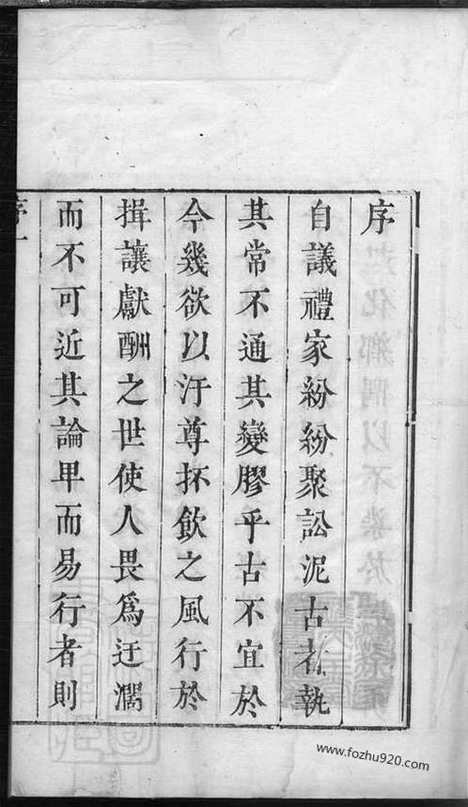 序
自議禮家紛紛聚訟泥古者執
其常不通其變膠乎古不宜於
今幾欲以汙尊抔飲之風行於
揖讓獻酬之世使人畏爲迂濶
而不可近其論卑而易行者則
序一
www.fozhu920.com